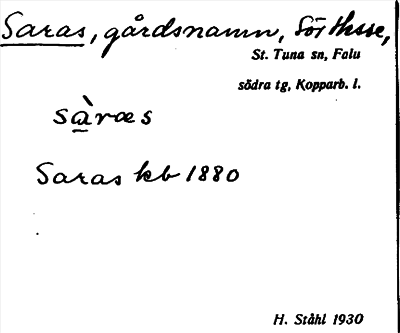 Saras, gårdsnamn, Sör Hesse,
St. Tuna sn, Falu
södra tg, Kopparb. l.
sàræs
Saras kb 1880
H. Ståhl 1930